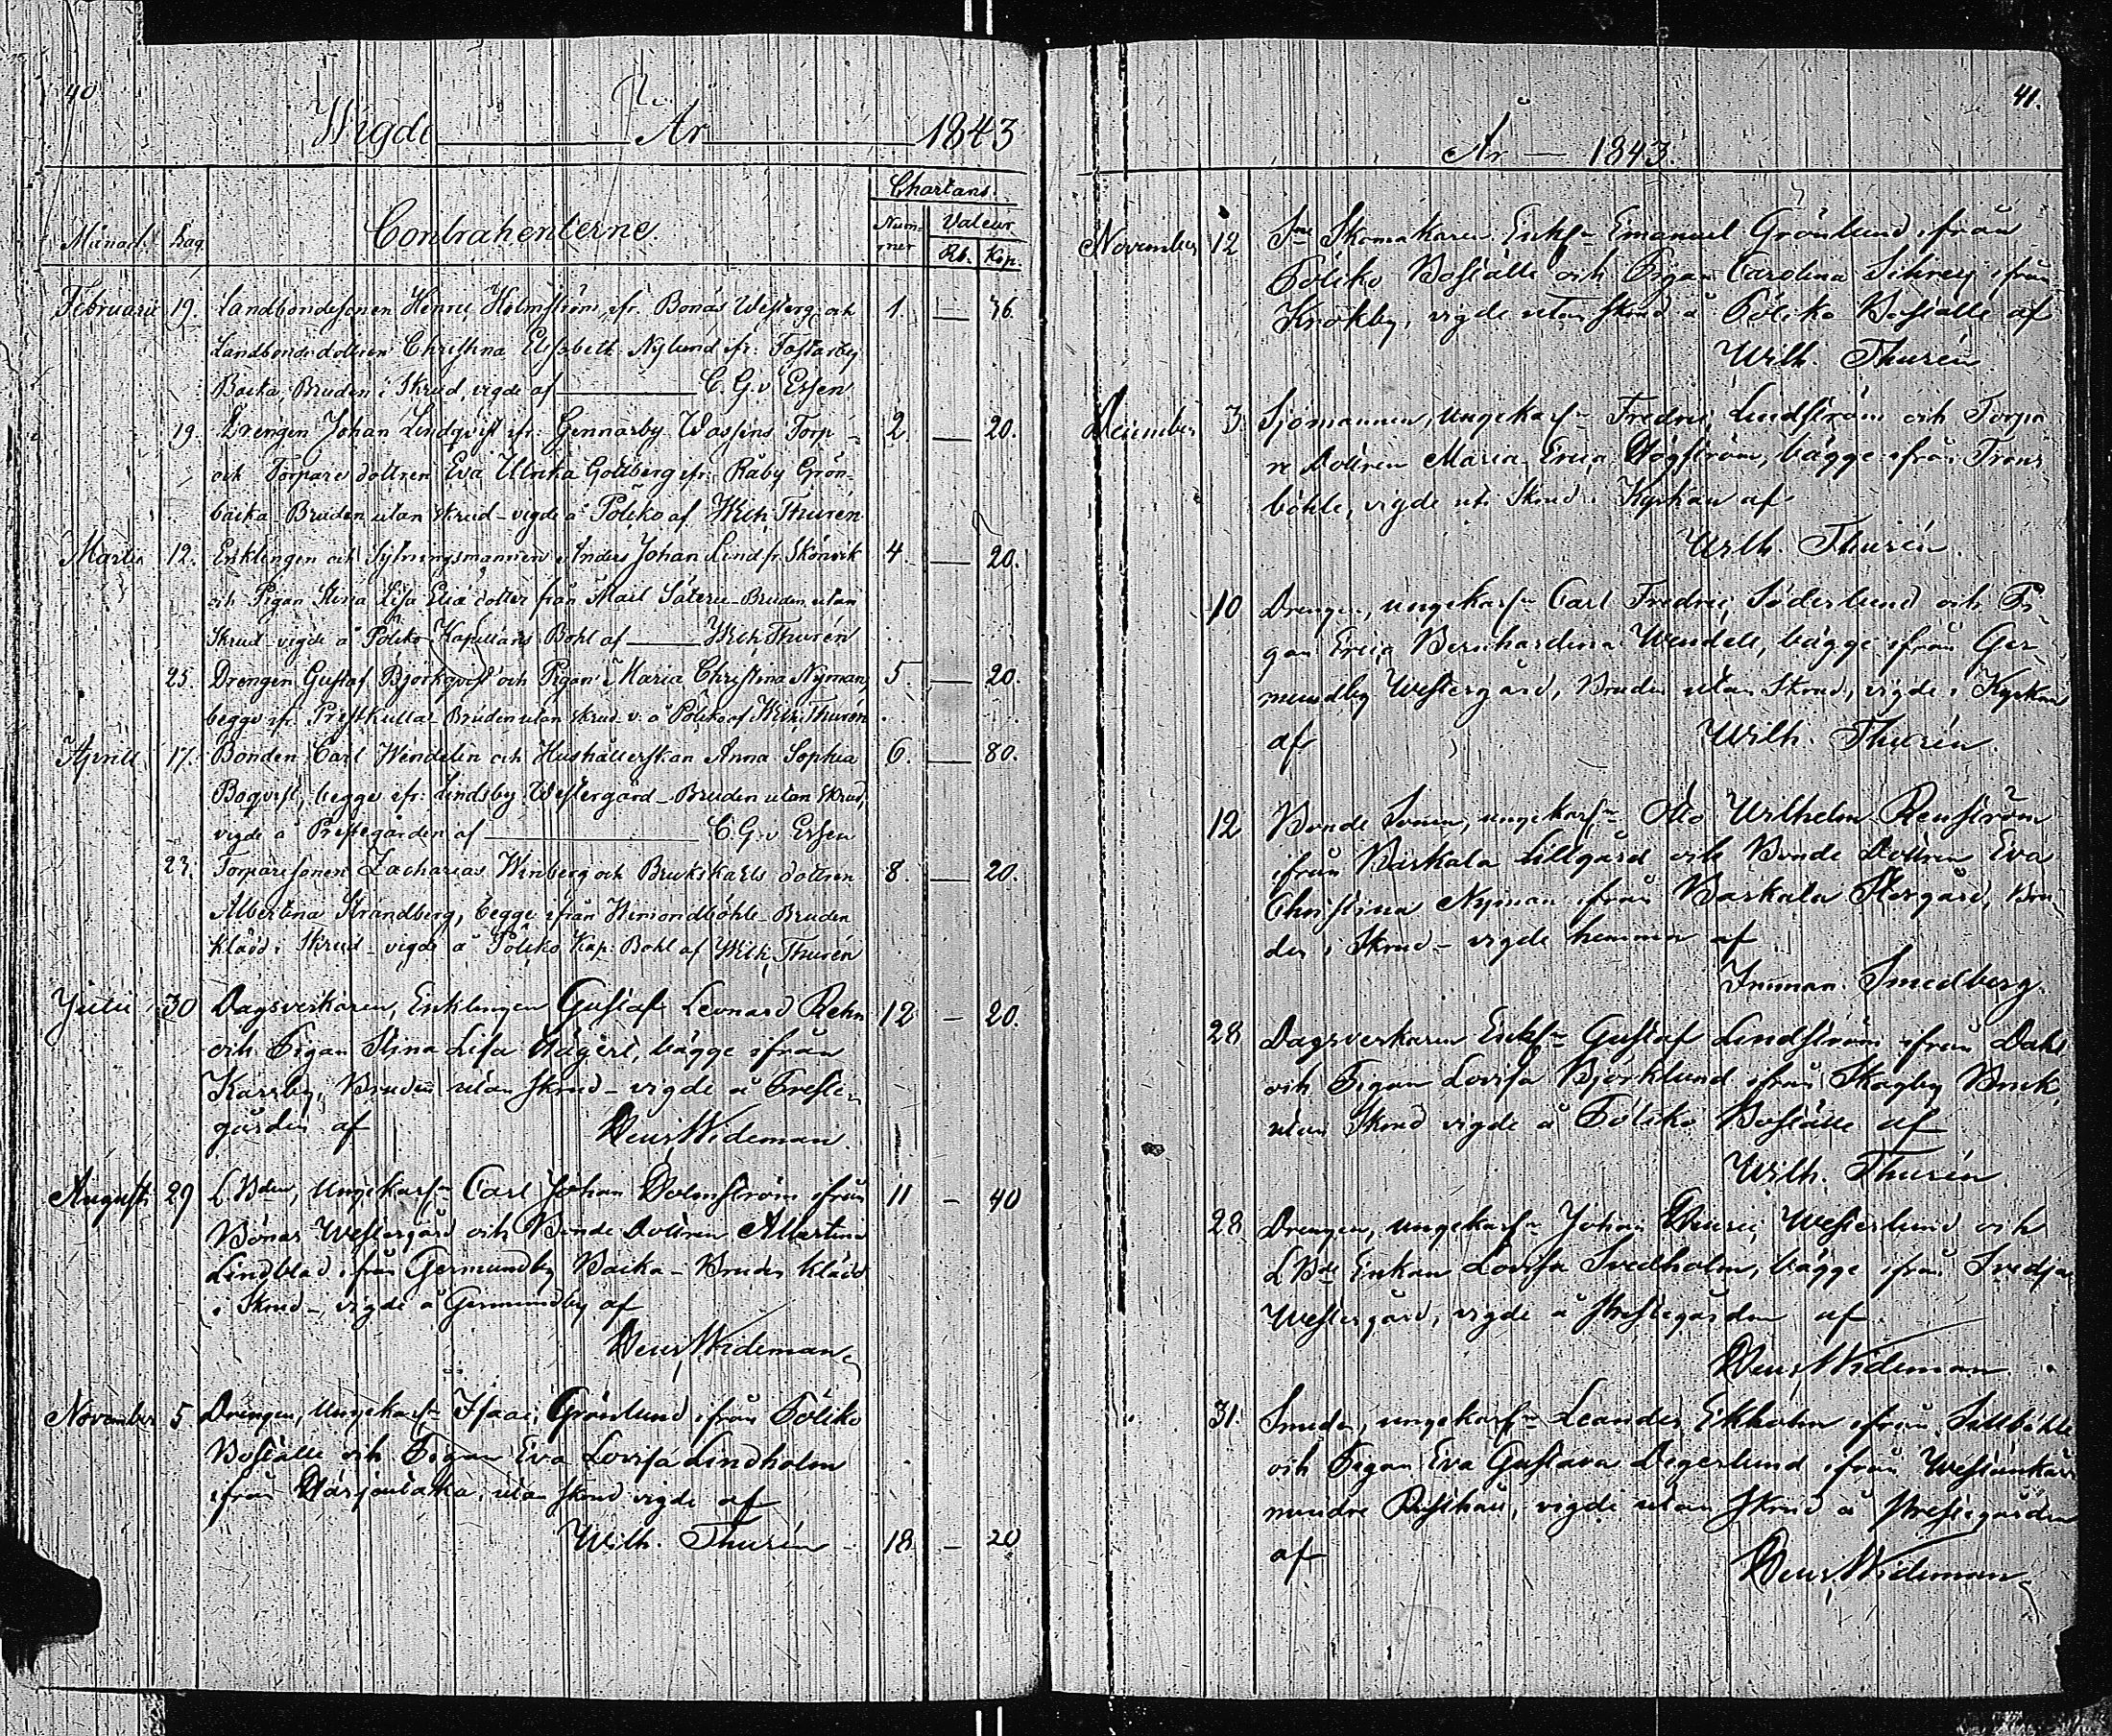 40
Wigde År 1843
Chartans.
Månad. Dag Contrahenterne Num-mer Valeur
Rb. Kop.
Februarii 19. Landbondesonen Henric Holmström ifr. Bonäs Westerg. och 1. — 36.
Landbonde dottren Christina Elisabeth Nylund ifr. Tostarby
Backa, Bruden i Skrud, vigde af C. G. v Essen
19. Drengen Johan Lindqvist ifr. Gennärby Torp 2. — 20.
och Torpare dottren Eva Ulrika Gottberg ifr. Råby Grön-
backa - Bruden utan skrud - vigde å Pöliko af Wilh. Thurén
Martii 12. Enklingen och Sytningsmannen Anders Johan Lind fr. Skönvik 4. — 20.
och Pigan Stina Lisa dotter från Säteri - Bruden utan
Skrud - vigde å Pöliko Kapellans Bohl af Wilh. Thurén
25. Drengen Gustaf Björkqvist och Pigan Maria Christina Nyman, 5 — 20.
begge ifr. Prestkulla Bruden utan skrud v. å Pöliko af Wilh. Thurén
Aprill 17. Bonden Carl Wendelin och Hushållerskan Anna Sophia 6. — 80.
Boqvist, begge ifr. Lindsby Westergård - Bruden utan skrud,
vigde å Prestegården af C. G. v Essen
23. Torparesonen Zacharias Winberg och Brukskarls dottren 8. — 20.
Albertina Strandberg, begge ifrån - Bruden
klädd i Skrud - vigde å Pöliko Kap. Bohl af Wilh. Thurén
Julii 30 Dagsverkaren, Enklingen Gustaf Leonard Rehn 12 — 20.
och Pigan Stina Lisa Hägert, bägge ifrån
Karsby, Bruden utan skrud - vigde å Preste-
gården af Wideman
Augusti 29 L. Bden, Ungekarln Carl Johan Holmström ifrån 11 — 40
Bönäs Westergård och Bonde Dottren Albertina
Lindblad ifrån Germundby Backa - Bruden klädd
i Skrud -, vigde å Germundby af
Wideman
November 5 Drengen, Ungekarln Isaac Grönlund ifrån Pöliko
Boställe och Pigan Eva Lovisa Lindholm
ifrån utan skrud vigde af
Wilh. Thurén 18 — 20
41.
År — 1843.
November 12 Skomakaren Enkln Emanuel Grönlund ifrån
Pöliko Boställe och Pigan Carolina ifrån
Krokby, vigde utan skrud å Pöliko Boställe af
Wilh. Thurén
December 3 Sjömannen, Ungekarln Fredric Lindström och Torpa-
re Dottren Maria Erica Högström, bägge ifrån Trons
böhle, vigde ut. Skrud i Kyrkan af
Wilh. Thurén.
10 Drengen, ungekarln Carl Fredric Söderlund och Pi-
gan Erica Bernhardina Wendell, bägge ifrån Ger-
mundby Westergård, Bruden utan Skrud, vigde i Kyrkan
af Wilh. Thurén.
12 Bonde Sonen, ungekarln Otto Wilhelm Renström
ifrån Baskala Lillgård och Bonde Dottren Eva
Christina Nyman ifrån Baskala Storgård, Bru-
den i Skrud - vigde hemma af
Smedberg.
28 Dagsverkaren Enkln Gustaf Lindström ifrån Dahl
och Pigan Lovisa Björklund ifrån Skogby Bruk,
utan Skrud vigde å Pöliko Boställe af
Wilh. Thurén
28 Drengen, ungekarln Johan Henric Westerlund och
L. Bde Enkan Lovisa Svedholm, bägge ifrån Svedja
Westergård, vigde å Prestegården af
Wideman
31. Smeden, ungekarln Leander Ekholm ifrån
och Pigan Eva Gustava Degerlund ifrån Westankärr
mindre Rusthåll, vigde utan Skrud å Prestegården
af Wideman